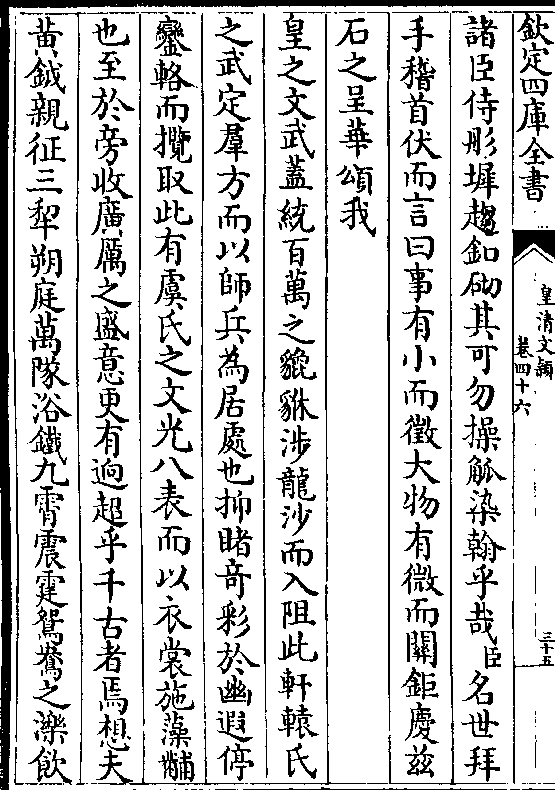 欽定四庫全書
皇清文穎
卷四十六
三十五
諸臣侍彤墀趨釦砌其可勿操觚染翰乎哉臣名世拜
手稽首伏而言曰事有小而徵大物有微而關鉅慶兹
石之呈華頌我
皇之文武蓋統百萬之貔貅涉龍沙而入阻此軒轅氏
之武定羣方而以師兵為居處也抑睹奇彩於幽遐停
鑾輅而攬取此有虞氏之文光八表而以衣裳施藻黼
也至於旁收廣厲之盛意更有逈超乎千古者焉想夫
黄鉞親征三犂朔庭萬隊浴鐵九霄震霆鴛鴦之濼飲